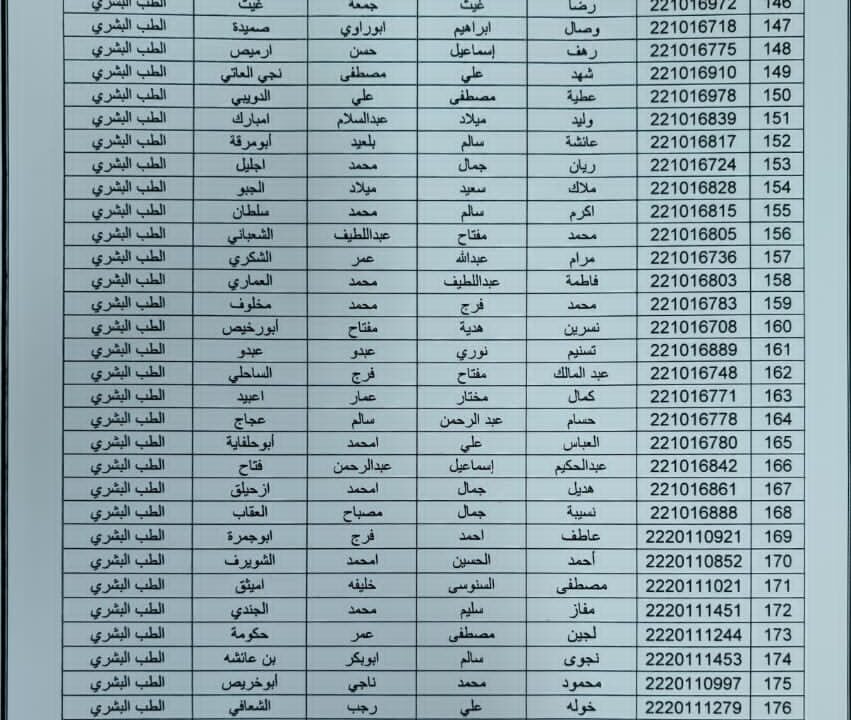 146 221016972 رضا غيث جمعة غيث الطب البشري
147 221016718 وصال ابراهيم ابوراوي صميدة الطب البشري
148 221016775 رهف إسماعيل حسن ارميص الطب البشري
149 221016910 شهد علي مصطفى نجي العاتي الطب البشري
150 221016978 عطية مصطفى علي الدويبي الطب البشري
151 221016839 وليد ميلاد عبدالسلام امبارك الطب البشري
152 221016817 عائشة سالم بلعيد أبومرقة الطب البشري
153 221016724 ريان جمال محمد اجليل الطب البشري
154 221016828 ملاك سعيد ميلاد الجبو الطب البشري
155 221016815 اكرم سالم محمد سلطان الطب البشري
156 221016805 محمد مفتاح عبداللطيف الشعباني الطب البشري
157 221016736 مرام عبدالله عمر الشكري الطب البشري
158 221016803 فاطمة عبداللطيف محمد العماري الطب البشري
159 221016783 محمد فرج محمد مخلوف الطب البشري
160 221016708 نسرين هدية مفتاح أبورخيص الطب البشري
161 221016889 تسنيم نوري عبدو عبدو الطب البشري
162 221016748 عبد المالك مفتاح فرج الساحلي الطب البشري
163 221016771 كمال مختار عمار اعبيد الطب البشري
164 221016778 حسام عبد الرحمن سالم عجاج الطب البشري
165 221016780 العباس علي امحمد أبوحلفاية الطب البشري
166 221016842 عبدالحكيم إسماعيل عبدالرحمن فتاح الطب البشري
167 221016861 هديل جمال امحمد ازحيلق الطب البشري
168 221016888 نسيبة جمال مصباح العقاب الطب البشري
169 2220110921 عاطف احمد فرج ابوجمرة الطب البشري
170 2220110852 أحمد الحسين امحمد الشويرف الطب البشري
171 2220111021 مصطفى السنوسى خليفه اميثق الطب البشري
172 2220111451 مفاز سليم محمد الجندي الطب البشري
173 2220111244 لجين مصطفى عمر حكومة الطب البشري
174 2220111453 نجوى سالم ابوبكر بن عائشه الطب البشري
175 2220110997 محمود محمد ناجي أبوخريص الطب البشري
176 2220111279 خوله علي رجب الشعافي الطب البشري